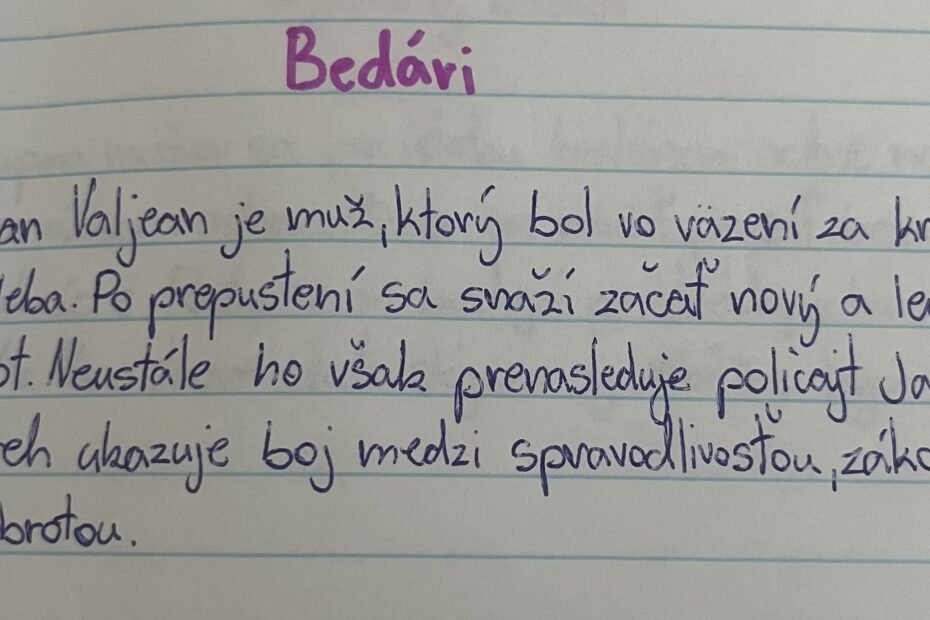 Bedári
an Valjean je muž, ktorý bol vo väzení za kr
leba. Po prepustení sa snaží začať nový a le
ot. Neustále ho však prenasleduje policajt Ja
eh ukazuje boj medzi spravodlivosťou, záko
brotou.